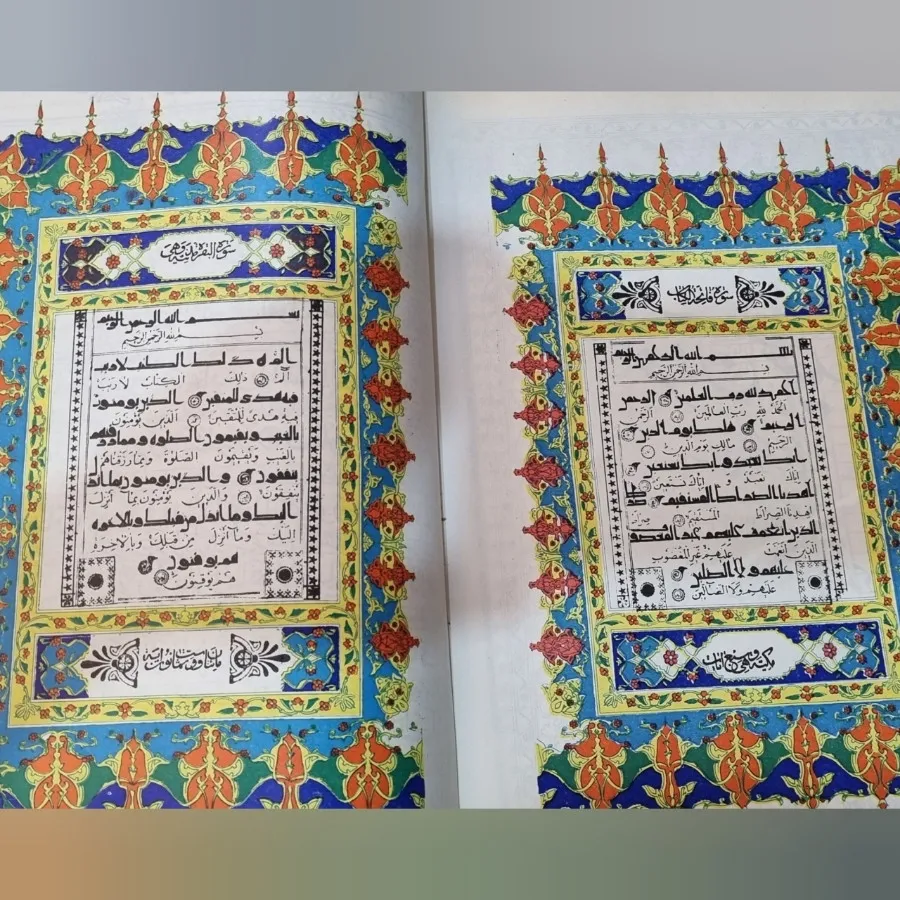 سورة فاتحة الكتاب
بسم الله الرحمن الرحيم
بسم الله الرحمن الرحيم
الحمد لله رب العلمين الرحمن
الحمد لله رب العالمين الرحمن
الرحيم ملك يوم الدين
الرحيم مالك يوم الدين
اياك نعبد و اياك نستعين
إياك نعبد و إياك نستعين
اهدنا الصراط المستقيم صراط
اهدنا الصراط المستقيم صراط
الذين انعمت عليهم غير المغضوب
الذين أنعمت عليهم غير المغضوب
عليهم ولا الضلين
عليهم ولا الضالين
مكية وهي سبع آيات
سورة البقرة مدنية وهي
بسم الله الرحمن الرحيم
بسم الله الرحمن الرحيم
الم ذلك الكتب لا ريب
الم ذلك الكتاب لا ريب
فيه هدى للمتقين الذين يومنون
فيه هدى للمتقين الذين يؤمنون
بالغيب و يقيمون الصلوة و مما رزقنهم
بالغيب ويقيمون الصلوة ومما رزقناهم
ينفقون و الذين يومنون بما انزل
ينفقون والذين يؤمنون بما أنزل
اليك و ما انزل من قبلك و بالاخره
إليك وما أنزل من قبلك وبالآخرة
هم يوقنون
هم يوقنون
آية